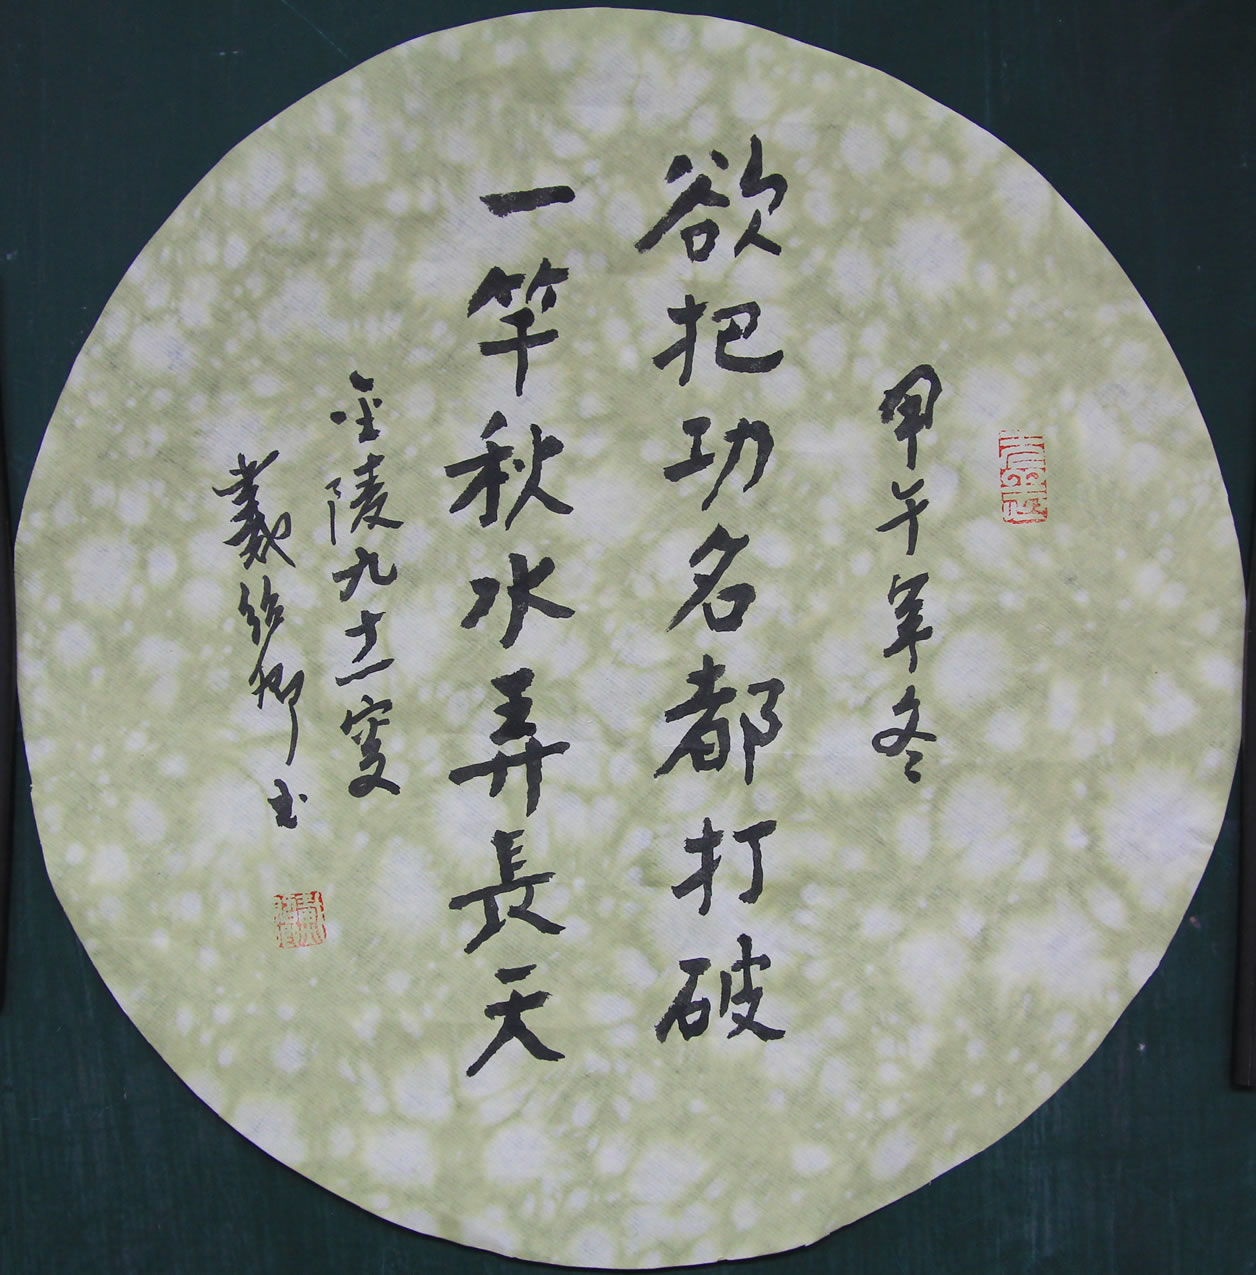 甲午年冬
欲把功名都打破
一竿秋水弄長天
金陵九十一叟
卿书